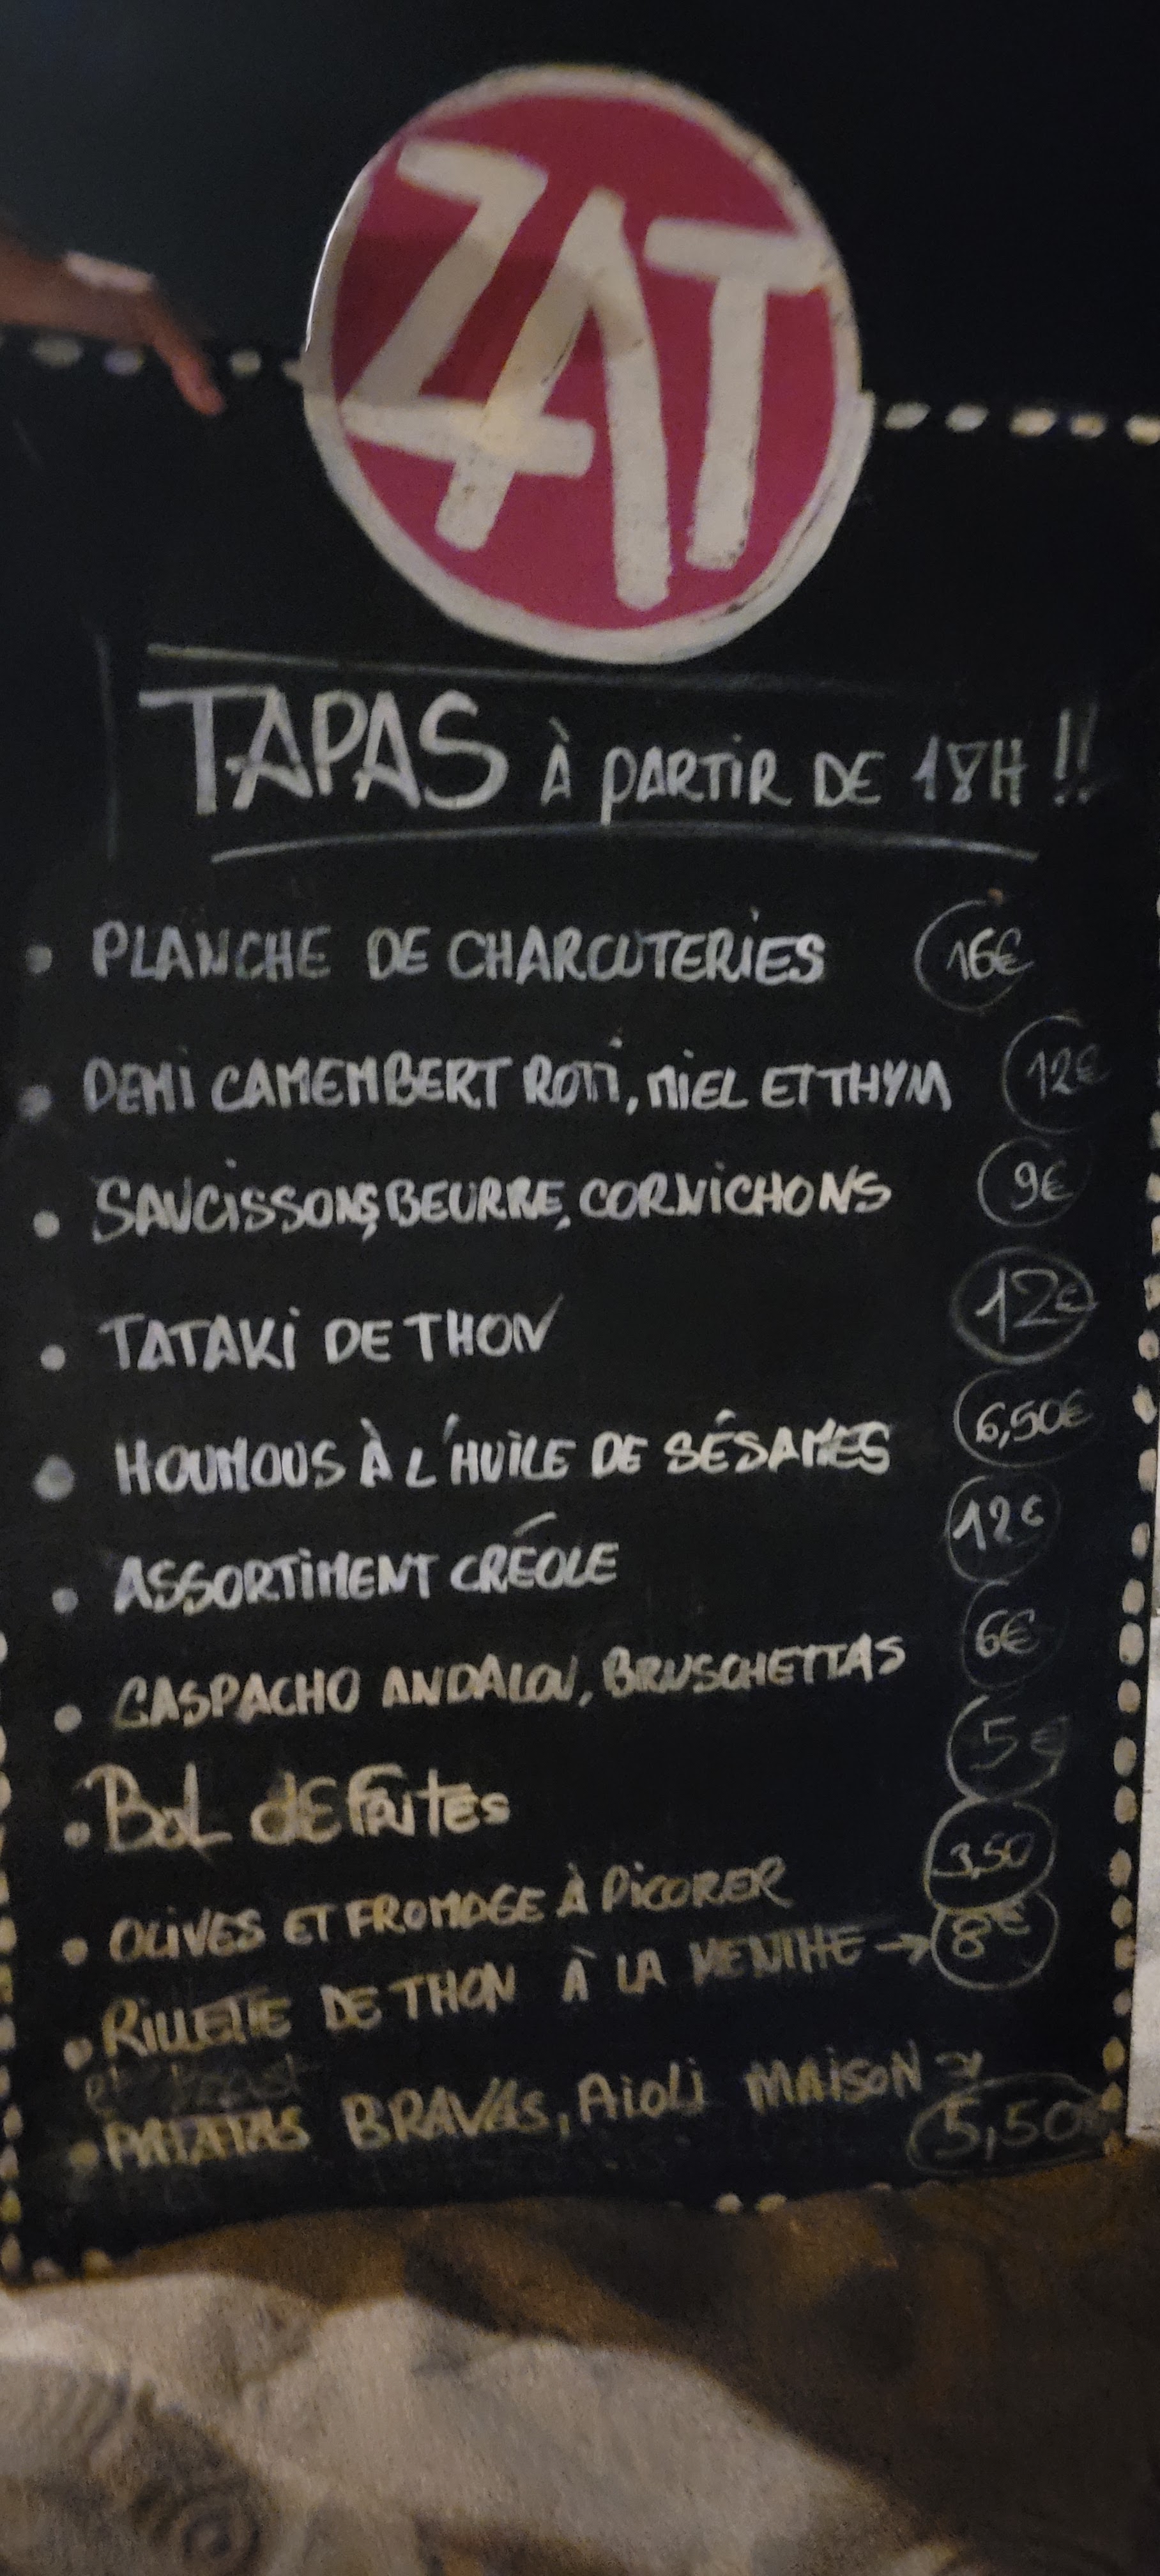 ZAT
TAPAS À PARTIR DE 18H !!
• PLANCHE DE CHARCUTERIES 16€
• DEMI CAMEMBERT ROTI, MIEL ET THYM 12€
• SAUCISSONS, BEURRE, CORNICHONS 9€
• TATAKI DE THON 12€
• HOUMOUS À L'HUILE DE SÉSAMES 6,50€
• ASSORTIMENT CRÉOLE 12€
• GASPACHO ANDALOU, BRUSCHETTAS 6€
• BOL dE FRITES 5€
• OLIVES ET FROMAGE À PICORER 3,50
• RILLETTE DE THON À LA MENTHE → 8€
et toast
• PATATAS BRAVAS, AIOLI MAISON → 5,50€